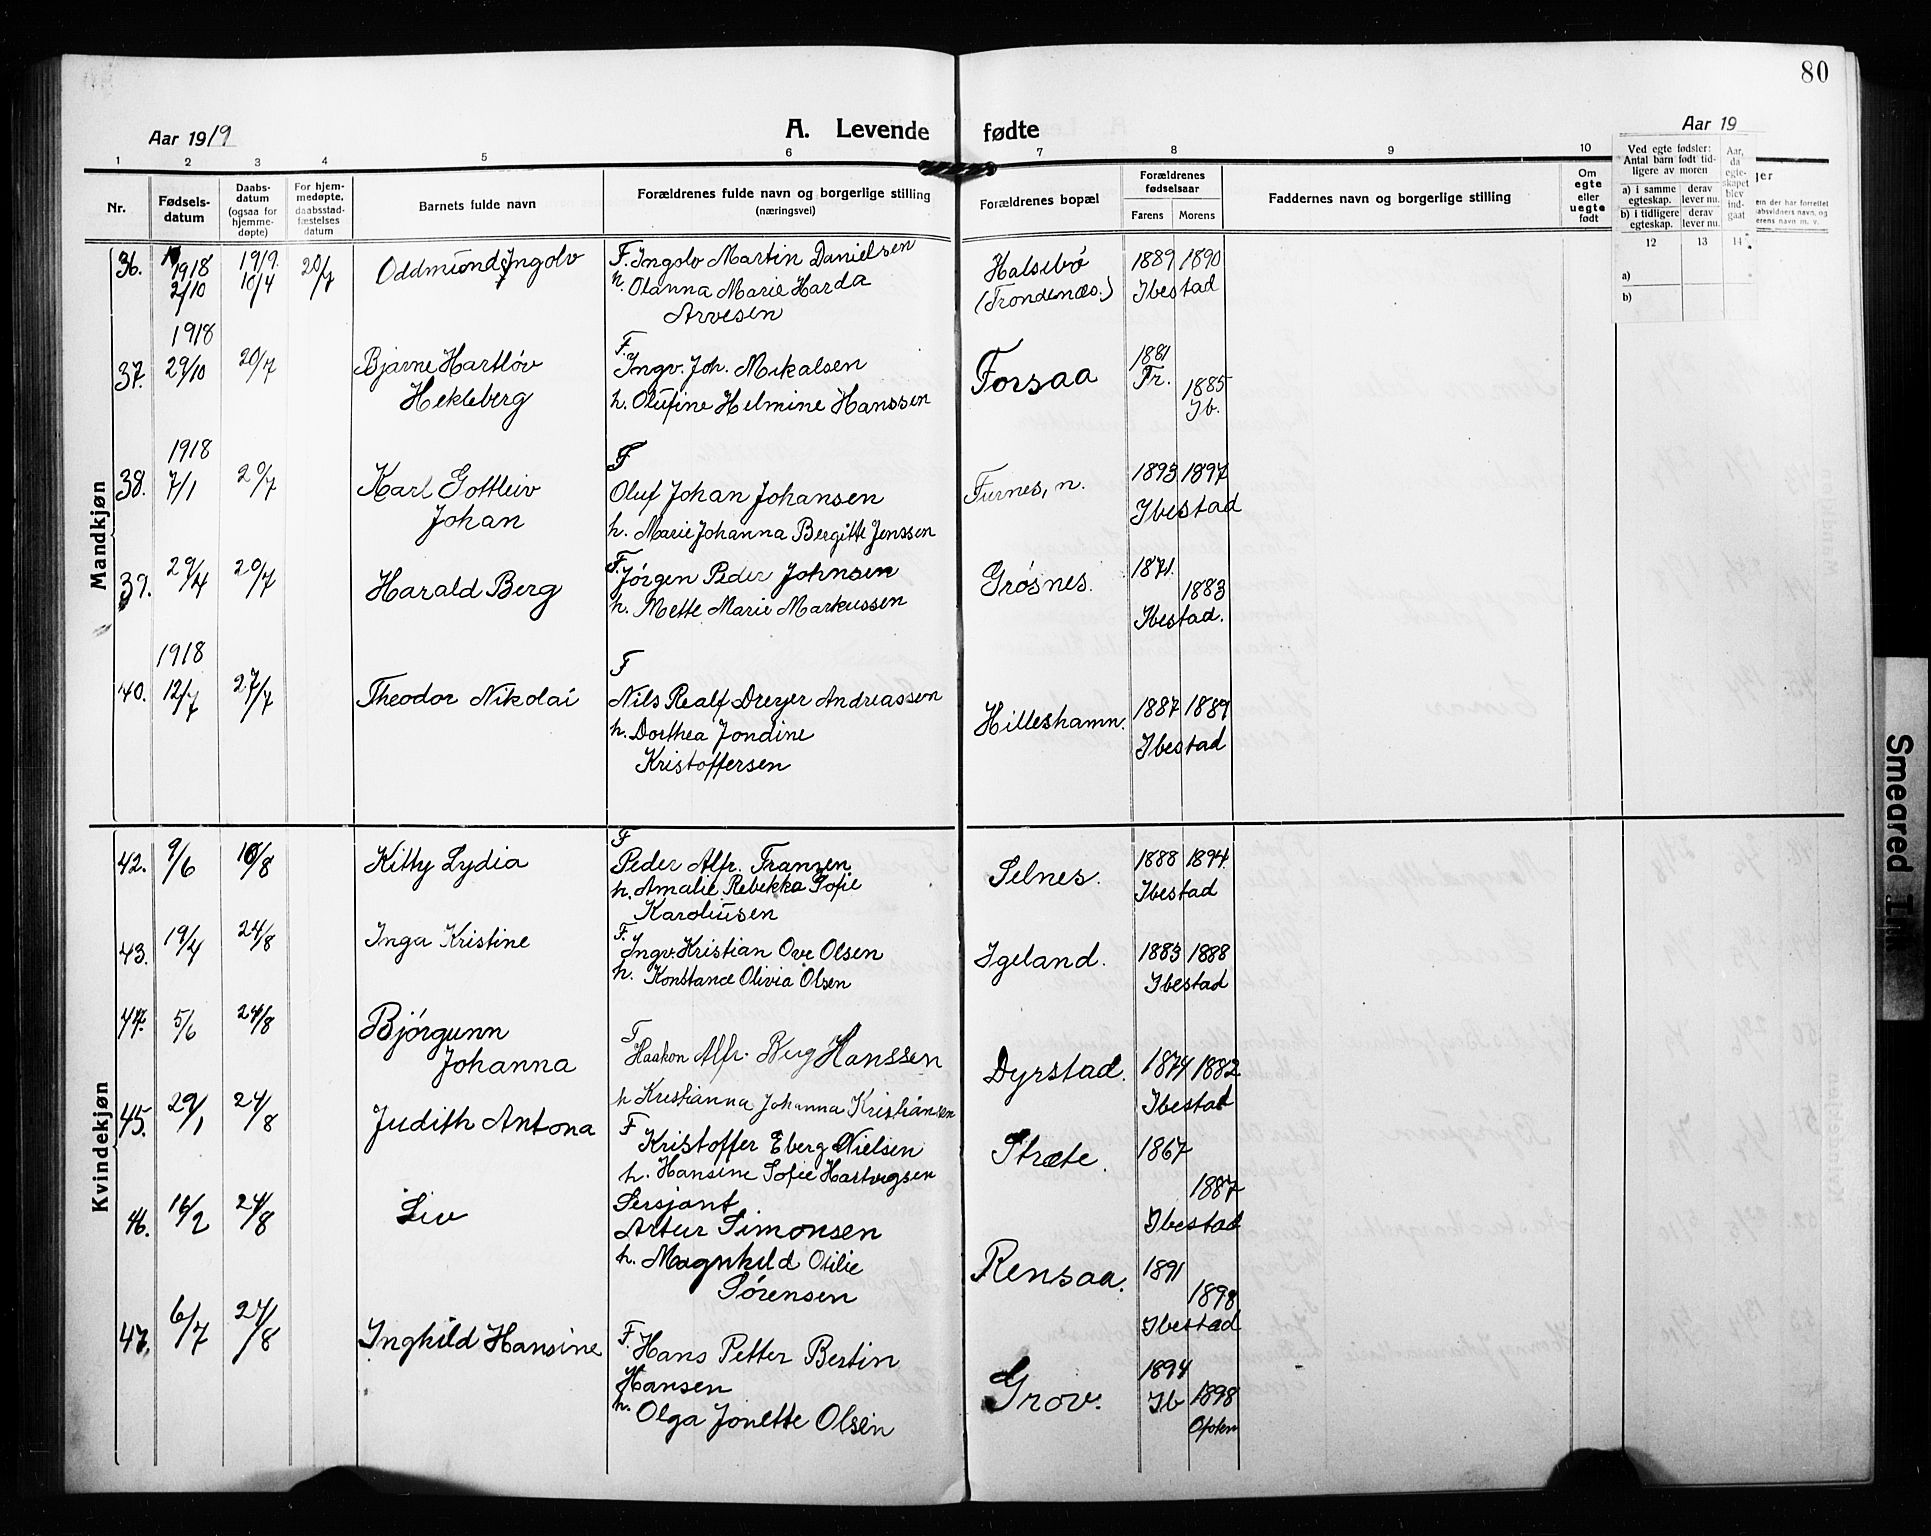 80
Aar 1919
A. Levende fødte
Aar 19
1 2 3 4 5 6 7 8 9 10
Nr.
Fødsels-
datum
Daabs-
datum
(ogsaa for
hjemme-
døpte)
For hjem-
medøpte,
daabsstad-
fæstelses
datum
Barnets fulde navn
Forældrenes fulde navn og borgerlige stilling
(næringsvei)
Forældrenes bopæl
Forældrenes
fødselsaar
Farens Morens
Faddernes navn og borgerlige stilling
Om
egte
eller
uegte
født
Ved egte fødsler:
Antal barn født tid-
ligere av moren
a) i samme
egteskap.
derav
lever nu.
b) i tidligere
egteskap.
derav
lever nu.
Aar,
da
egte-
skapet
blev
ind-
gaat
12 13 14
a)
b)
Mandkjøn
36. 1918 2/10 1919 10/4 20/7 Oddmund Ingolv
F. Ingolv Martin Danielsen
h. Olanna Marie Harda
Arvesen
Halsebö
(Trondenæs.)
1889 1890
Ibestad
37. 1918 29/10 20/7 Bjarne Hartløv
Hekleberg
F.
Ingv. Joh. Mikalsen
h. Olufine Helmine Hanssen
Forsaa
1881
Tr.
1885
Ib.
38. 1918 7/1 20/7 Karl Gottleiv
Johan
F
Oluf Johan Johansen
h. Marie Johanna Bergitte Jenssen
Furnes, n.
1893 1897
Ibestad
39. 29/4 20/7 Harald Berg
F. Jörgen Peder Johnsen
h. Mette Marie Markussen
Grøsnes.
1871.
1883
Ibestad.
40. 1918 12/7 27/7 Theodor Nikolai
F
Nils Realf Dreyer Andreassen
h. Dorthea Jondine
Kristoffersen
Hilleshamn.
1887 1889
Ibestad
Kvindekjøn
42. 9/6 10/8 Kitty Lydia
F
Peder Alfr. Transen
h. Amalie Rebekka Sofie
Karoliusen
Selnes.
1888 1894.
Ibestad
43. 19/4 24/8 Inga Kristine
F.
Ingv. Kristian Ove Olsen
h. Konstance Olivia Olsen
Igeland.
1883 1888
Ibestad
44. 5/6 24/8 Björgunn
Johanna
F
Haakon Alfr. Berg Hanssen
h Kristianna Johanna Kristiansen
Dyrstad.
1874 1882
Ibestad
45. 29/1 24/8 Judith Antona
F
Kristoffer Eberg Nielsen
h. Hansine Sofie Hartvigsen
Stræte.
1867
1887
Ibestad
46. 16/2 24/8 Liv
Sersjant
Artur Simonsen
h. Magnhild Otilie
Sörensen
Rensaa.
1891
1898
Ibestad
47. 6/7 24/8 Inghild Hansine
F. Hans Petter Bertin
Hansen
h. Olga Jonette Olsen
Grov.
1894
Ib
1898
Ofoten
Smeared